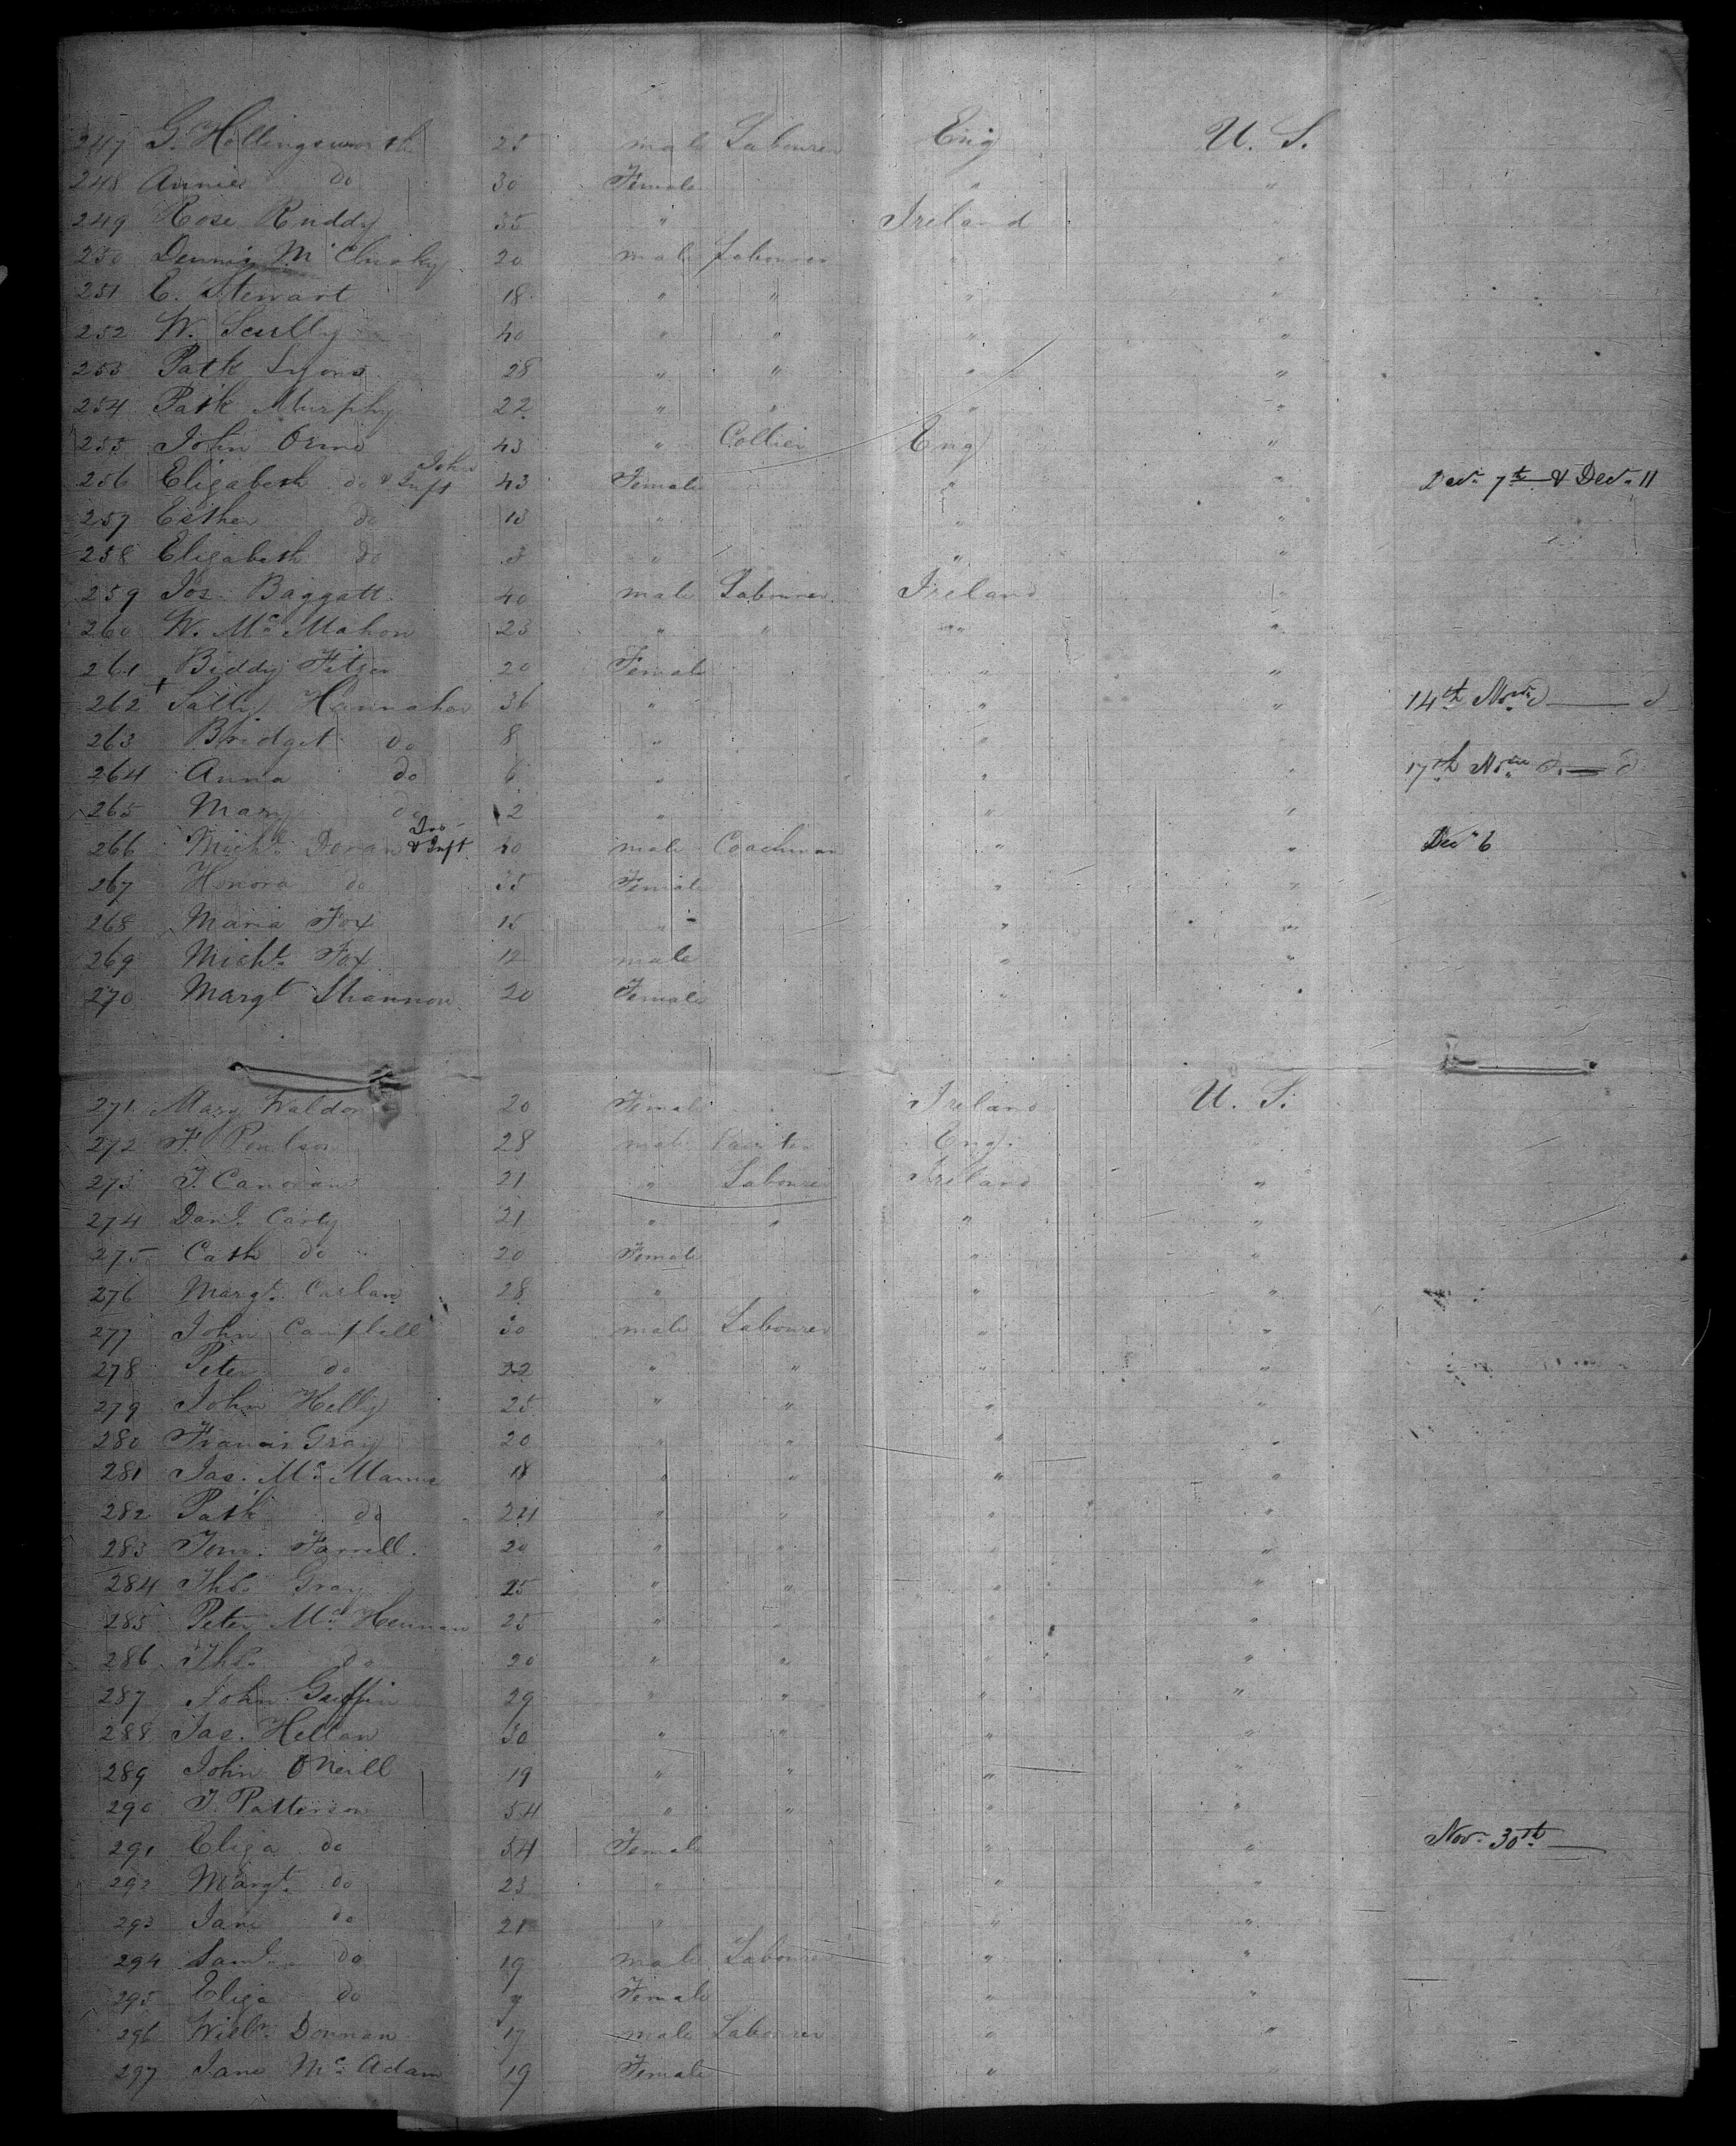 247 G. Hollingsworth 25 male Labourer Eng U. S.
248 Annie do 30 Female " "
249 Rose Ruddy 35 " Ireland "
250 Dennis Mc Clusky 20 male Labourer " "
251 C. Stewart 18 " " " "
252 W. Scully 40 " " " "
253 Patk Lyons 28 " " " "
254 Patk Murphy 22 " " " "
255 John Orme 43 " Collier Eng "
256 Elizabeth do & Inft John 43 Female " " Decr 7th & Decr 11
257 Esther do 13 " " "
258 Elizabeth do 3 " " "
259 Jos. Baggatt 40 male Labourer Ireland "
260 W. Mc Mahon 23 " " " "
261 Biddy 20 Female " "
262 + Sally Hannahan 36 " " " 14th Novr
263 Bridget do 8 " "
264 Anna do 6 " " " 17th Novr
265 Mary do 2 " " "
266 Michl Doran & Inft 40 male Coachman " " Decr 6
267 Honora do 35 Female " "
268 Maria Fox 15 " " "
269 Michl. Fox 12 male " "
270 Margt Shannon 20 Female " "
271 Mary Waldon 20 Female Ireland U. S.
272 F. Poulson 28 male Eng. "
273 T. Canovan 21 " Labourer Ireland "
274 Danl. Carty 21 " " " "
275 Cath do 20 Female " "
276 Margt. Caslan 28 " " "
277 John Campbell 30 male Labourer " "
278 Peter do 22 " " " "
279 John Kelly 25 " " " "
280 Francis Gray 20 " " " "
281 Jas. Mc Manus 18 " " " "
282 Patk do 24 " " " "
283 Farrell 20 " " " "
284 Thos. Gray 25 " " " "
285 Peter Mc Kernan 25 " " " "
286 Thos. do 20 " " " "
287 John Griffin 29 " " " "
288 Jas. 30 " " " "
289 John O Neill 19 " " " "
290 J. Patterson 54 " " " "
291 Eliza do 54 Female " " Novr 30th
292 Margt. do 23 " " "
293 Jane do 21 " " "
294 Saml. do 19 male Labourer " "
295 Eliza do 9 Female " "
296 Willm Donnan 17 male Labourer " "
297 Jane Mc Adam 19 Female " "